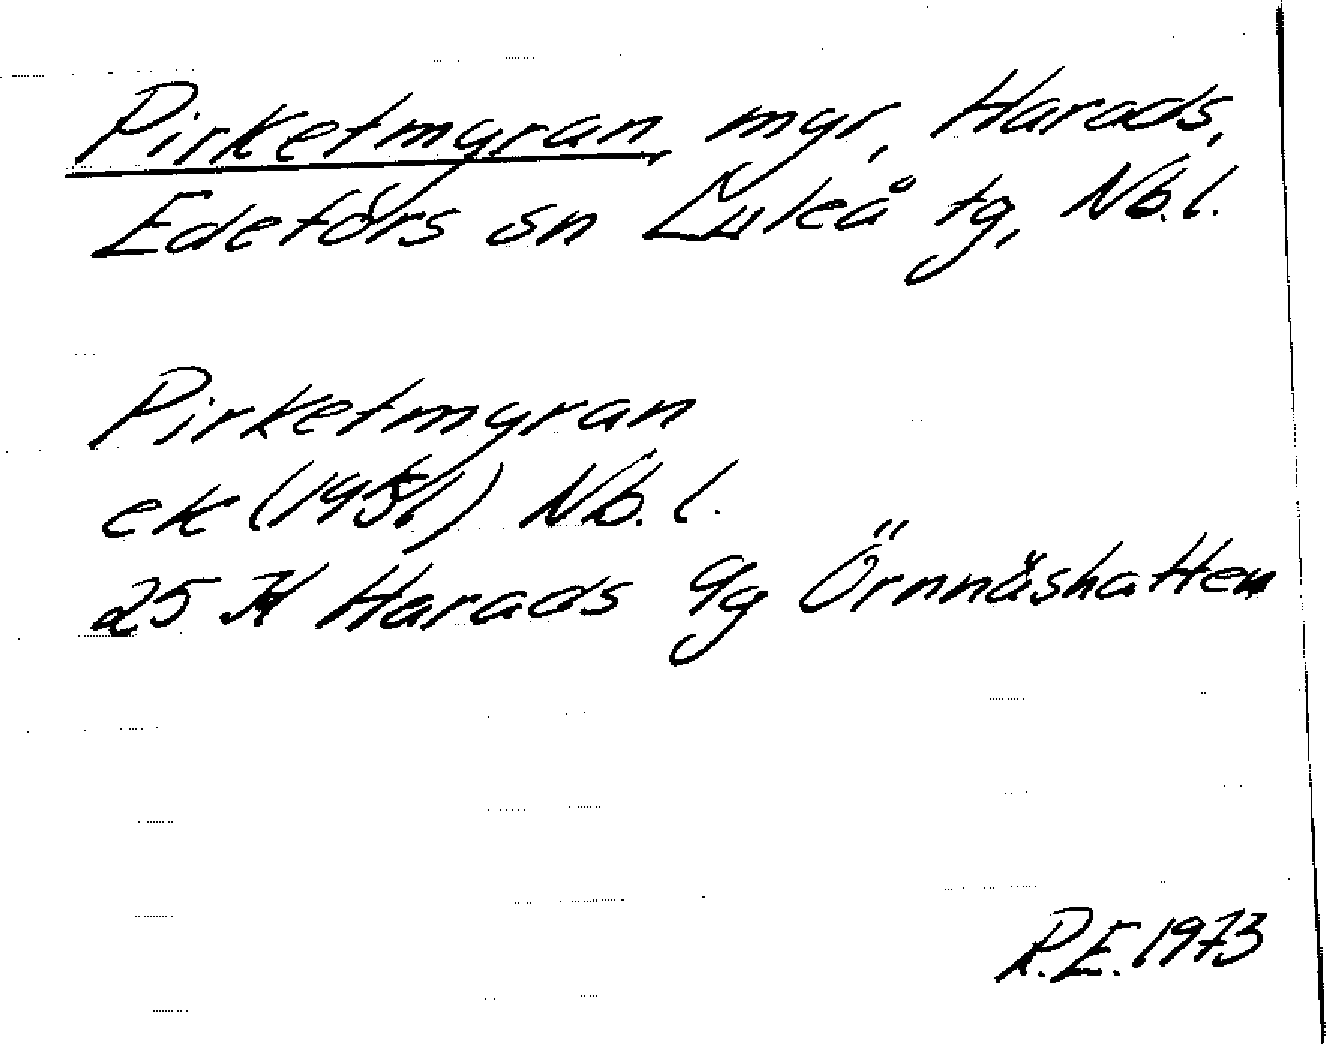 Pirketmyran, myr, Harads,
Edefors sn Luleå tg, Nb.l.
Pirketmyran
ek (1951) Nb.l.
25 K Harads 9g Örnnäshatten
R.E. 1973